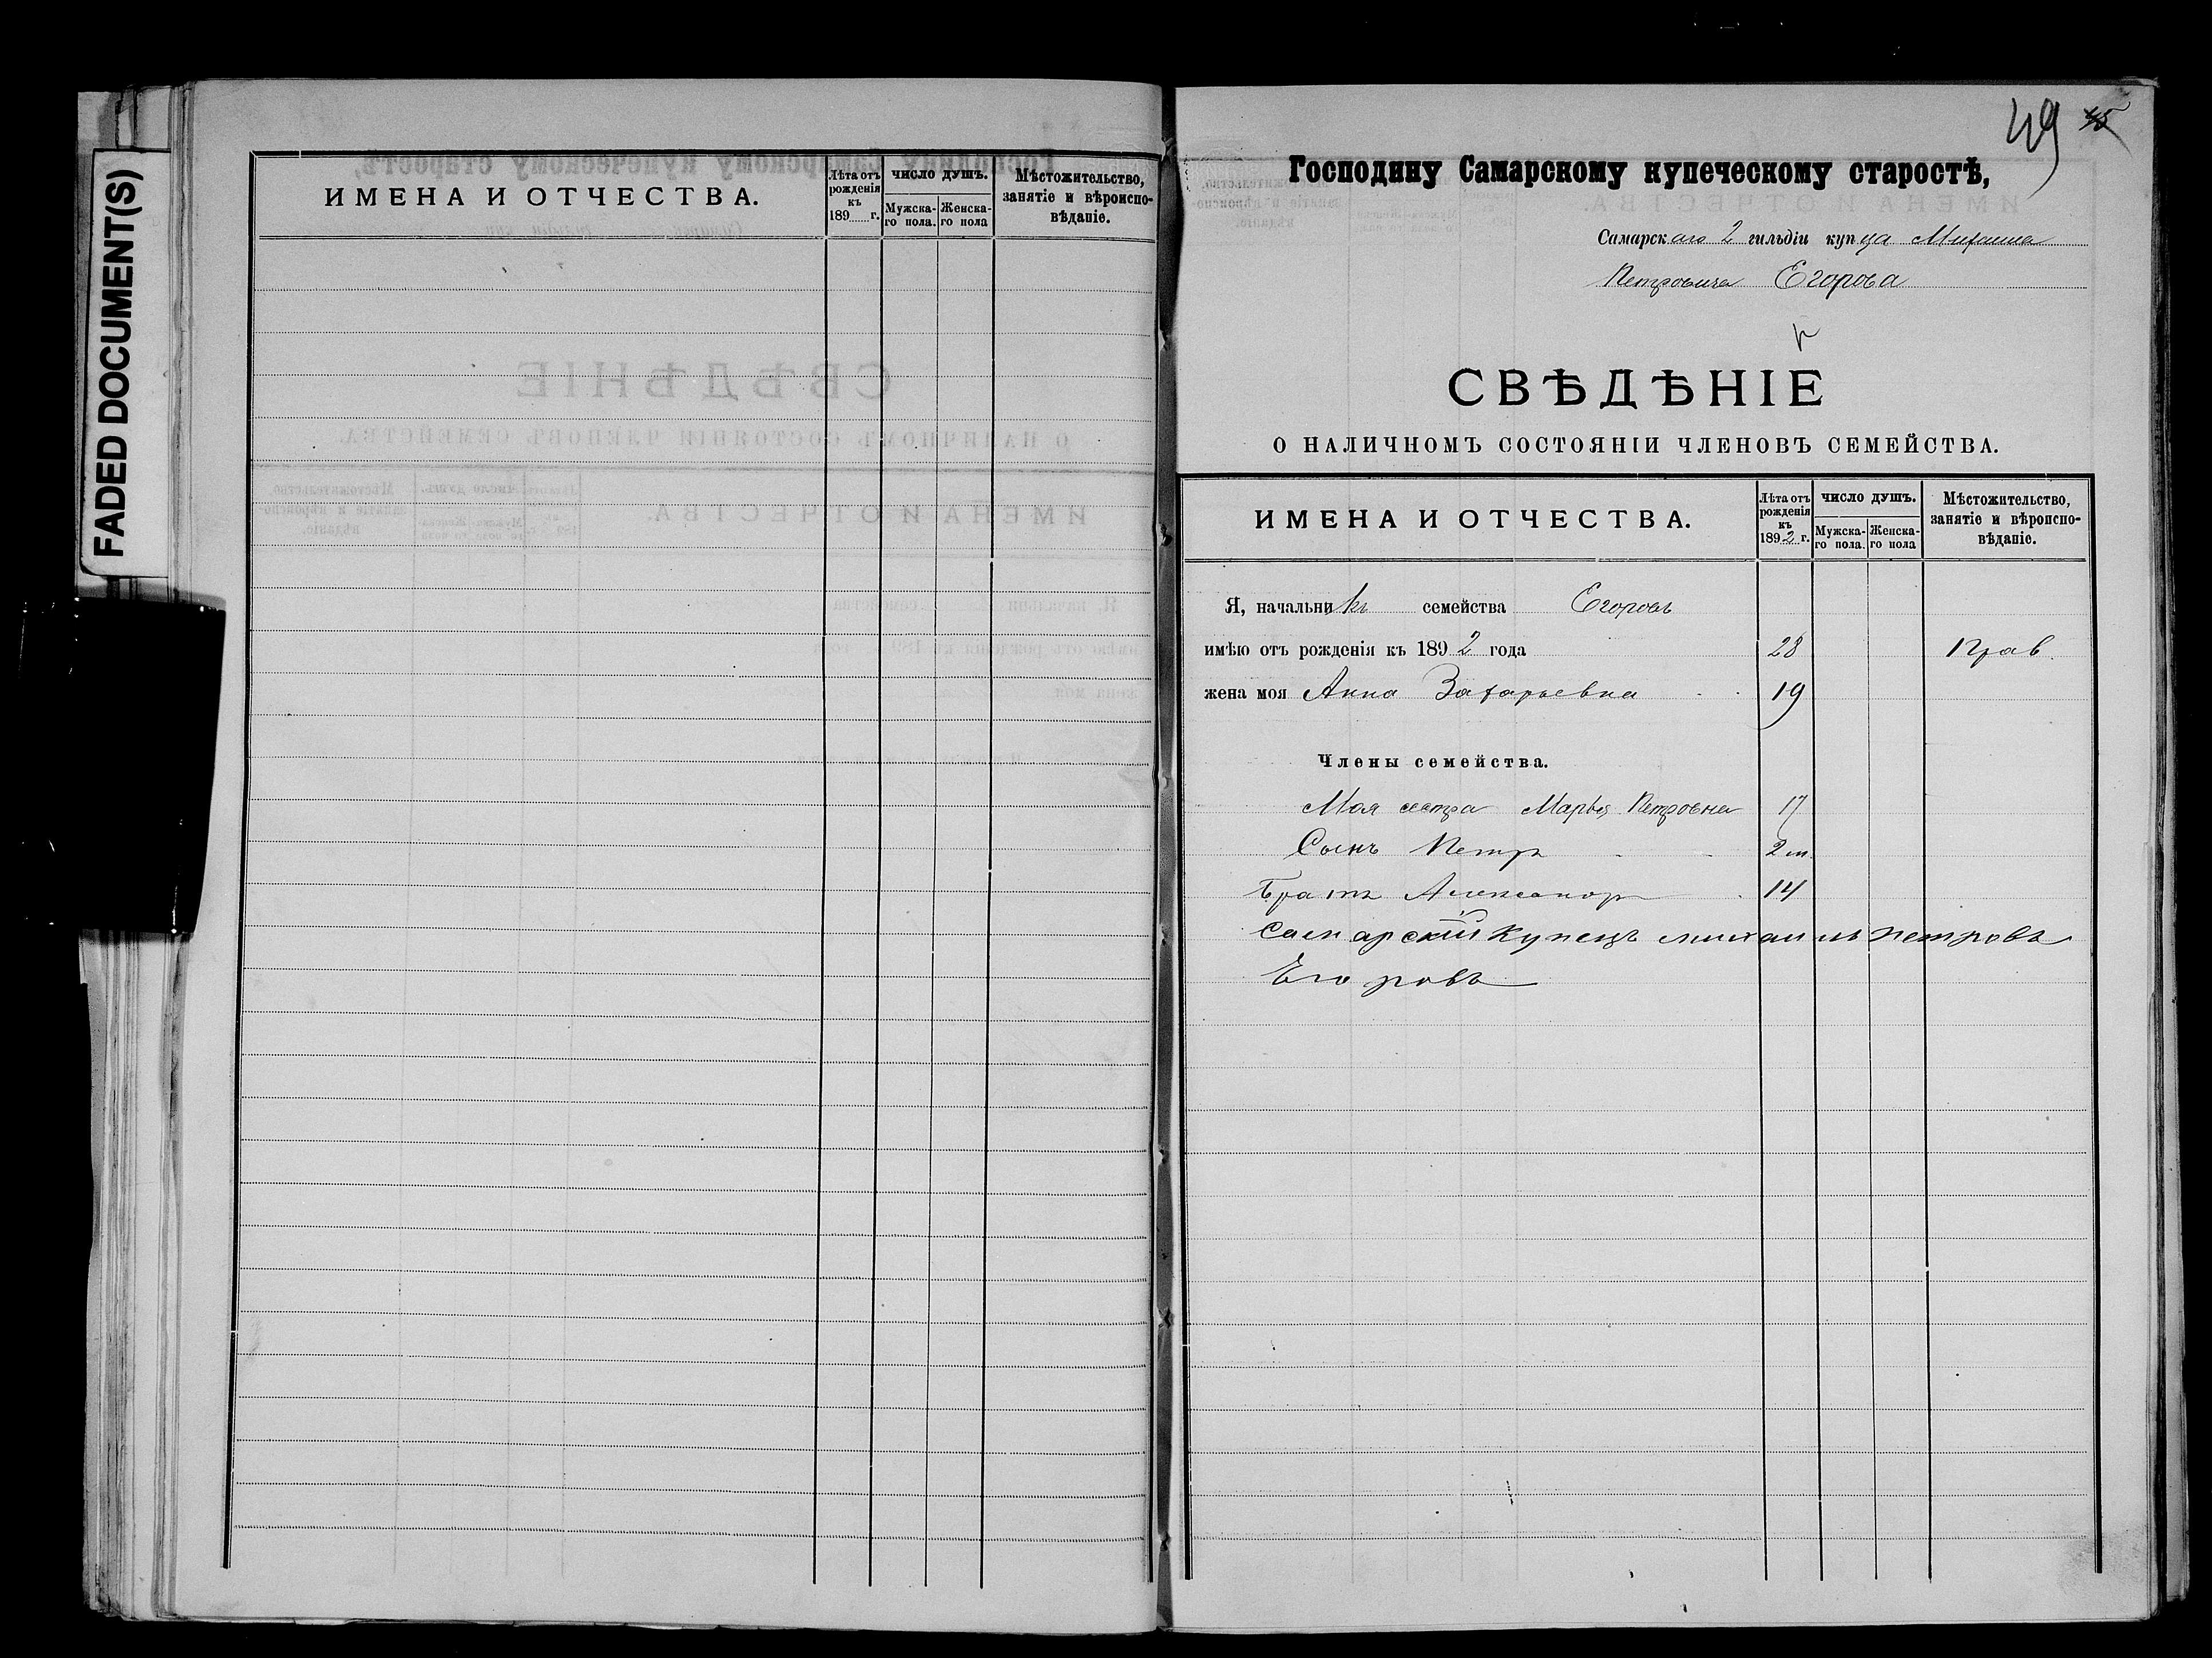 FADED DOCUMENT(S)
ИМЕНА И ОТЧЕСТВА.
Лѣта отъ рожденія къ 189 г.
ЧИСЛО ДУШЪ.
Мужска-го пола.
Женска-го пола
Мѣстожительство, занятіе и вѣроиспо-вѣданіе.
49 45
Господину Самарскому купеческому старостѣ,
Самарскаго 2 гильдіи купца Михаила
Петровича Егорова
СВѢДѢНІЕ
О НАЛИЧНОМЪ СОСТОЯНІИ ЧЛЕНОВЪ СЕМЕЙСТВА.
ИМЕНА И ОТЧЕСТВА.
Лѣта отъ рожденія къ 1892 г.
ЧИСЛО ДУШЪ.
Мужска-го пола.
Женска-го пола
Мѣстожительство, занятіе и вѣроиспо-вѣданіе.
Я, начальникъ семейства Егоровъ
имѣю отъ рожденія къ 1892 года 28 Прав.
жена моя Анна Захарьевна 19
Члены семейства.
Моя сестра Марья Петровна 17
Сынъ Петръ 2 м.
Братъ Александръ 14
Самарскій Купецъ михаилъ петровъ
Егоровъ